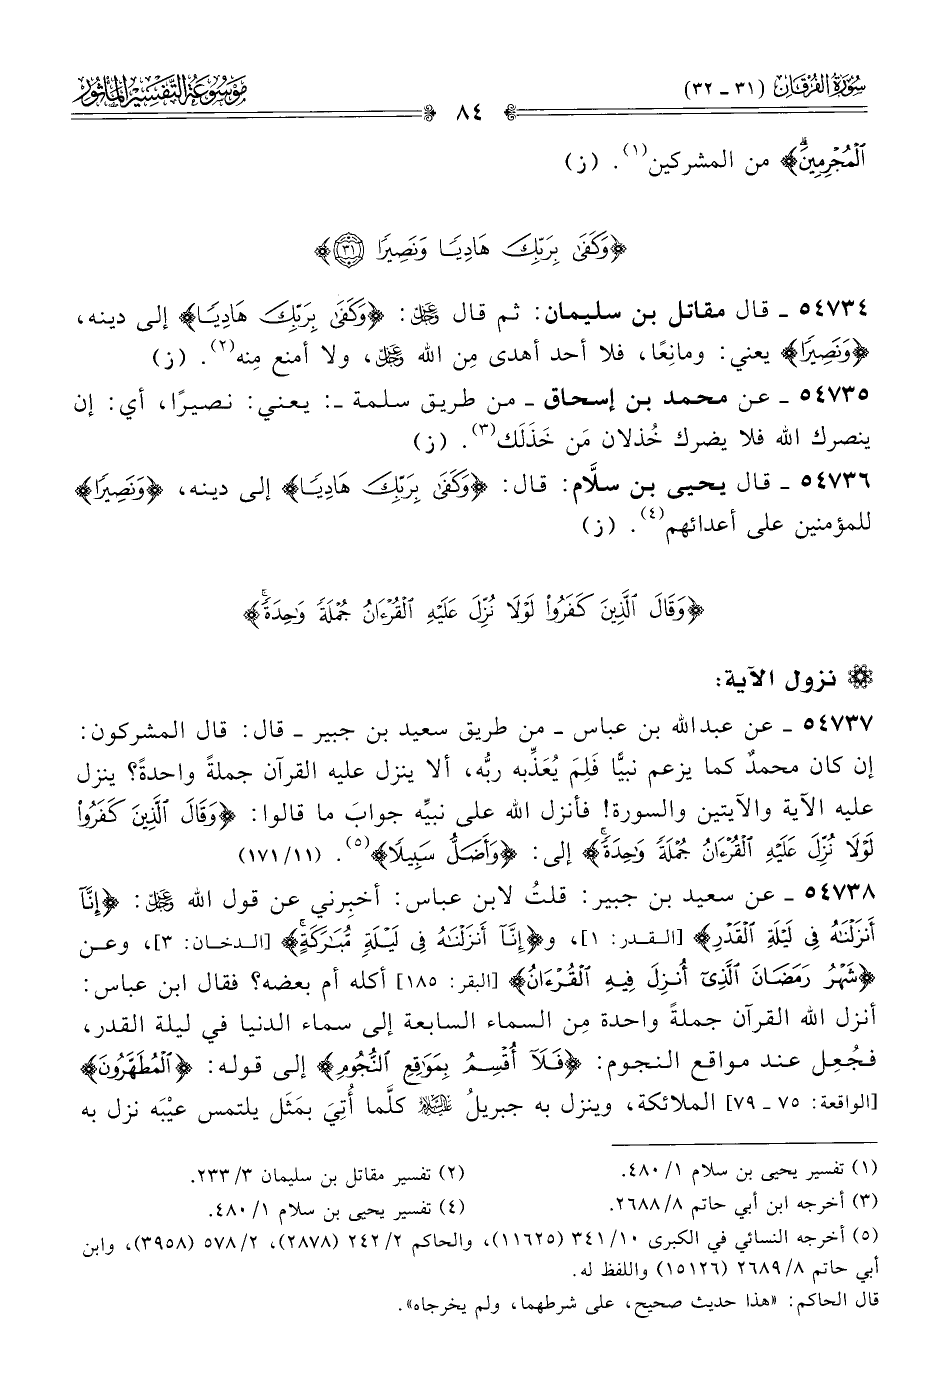 سُورَةُ الفُرْقَان (٣١ - ٣٢)
٨٤
مَوْسُوعَة التَّفْسِيرِ المَأْثُور
ٱلْمُجْرِمِينَۗ﴾ من المشركين(١). (ز)
﴿وَكَفَىٰ بِرَبِّكَ هَادِيًا وَنَصِيرًا ٣١﴾
٥٤٧٣٤ - قال مقاتل بن سليمان: ثم قال ﷿: ﴿وَكَفَىٰ بِرَبِّكَ هَادِيًا﴾ إلى دينه،
﴿وَنَصِيرًا﴾ يعني: ومانِعًا، فلا أحد أهدى مِن الله ﷿، ولا أمنع مِنه(٢). (ز)
٥٤٧٣٥ - عن محمد بن إسحاق - من طريق سلمة -: يعني: نصيرًا، أي: إن
ينصرك الله فلا يضرك خُذلان مَن خَذَلَك(٣). (ز)
٥٤٧٣٦ - قال يحيى بن سلَّام: قال: ﴿وَكَفَىٰ بِرَبِّكَ هَادِيًا﴾ إلى دينه، ﴿وَنَصِيرًا﴾
للمؤمنين على أعدائهم(٤). (ز)
﴿وَقَالَ ٱلَّذِينَ كَفَرُوا۟ لَوْلَا نُزِّلَ عَلَيْهِ ٱلْقُرْءَانُ جُمْلَةً وَٰحِدَةًۚ﴾
نزول الآية:
٥٤٧٣٧ - عن عبدالله بن عباس - من طريق سعيد بن جبير - قال: قال المشركون:
إن كان محمدٌ كما يزعم نبيًّا فَلِمَ يُعَذِّبه ربُّه، ألا ينزل عليه القرآن جملةً واحدةً؟ ينزل
عليه الآية والآيتين والسورة! فأنزل الله على نبيِّه جوابَ ما قالوا: ﴿وَقَالَ ٱلَّذِينَ كَفَرُوا۟
لَوْلَا نُزِّلَ عَلَيْهِ ٱلْقُرْءَانُ جُمْلَةً وَٰحِدَةًۚ﴾ إلى: ﴿وَأَضَلُّ سَبِيلًا﴾(٥). (١١/ ١٧١)
٥٤٧٣٨ - عن سعيد بن جبير: قلتُ لابن عباس: أخبِرني عن قول الله ﷿: ﴿إِنَّآ
أَنزَلْنَٰهُ فِى لَيْلَةِ ٱلْقَدْرِ﴾ [القدر: ١]، و﴿إِنَّآ أَنزَلْنَٰهُ فِى لَيْلَةٍ مُّبَٰرَكَةٍۚ﴾ [الدخان: ٣]، وعن
﴿شَهْرُ رَمَضَانَ ٱلَّذِىٓ أُنزِلَ فِيهِ ٱلْقُرْءَانُ﴾ [البقر: ١٨٥] أكله أم بعضه؟ فقال ابن عباس:
أنزل الله القرآن جملةً واحدة مِن السماء السابعة إلى سماء الدنيا في ليلة القدر،
فجُعِل عند مواقع النجوم: ﴿فَلَآ أُقْسِمُ بِمَوَٰقِعِ ٱلنُّجُومِ﴾ إلى قوله: ﴿ٱلْمُطَهَّرُونَ﴾
[الواقعة: ٧٥ - ٧٩] الملائكة، وينزل به جبريلُ عليه السلام كلَّما أُتِيَ بمَثَل يلتمس عيْبَه نزل به
(١) تفسير يحيى بن سلام ١/ ٤٨٠.
(٢) تفسير مقاتل بن سليمان ٣/ ٢٣٣.
(٣) أخرجه ابن أبي حاتم ٨/ ٢٦٨٨.
(٤) تفسير يحيى بن سلام ١/ ٤٨٠.
(٥) أخرجه النسائي في الكبرى ١٠/ ٣٤١ (١١٦٢٥)، والحاكم ٢/ ٢٤٢ (٢٨٧٨)، ٢/ ٥٧٨ (٣٩٥٨)، وابن
أبي حاتم ٨/ ٢٦٨٩ (١٥١٢٦) واللفظ له.
قال الحاكم: «هذا حديث صحيح، على شرطهما، ولم يخرجاه».